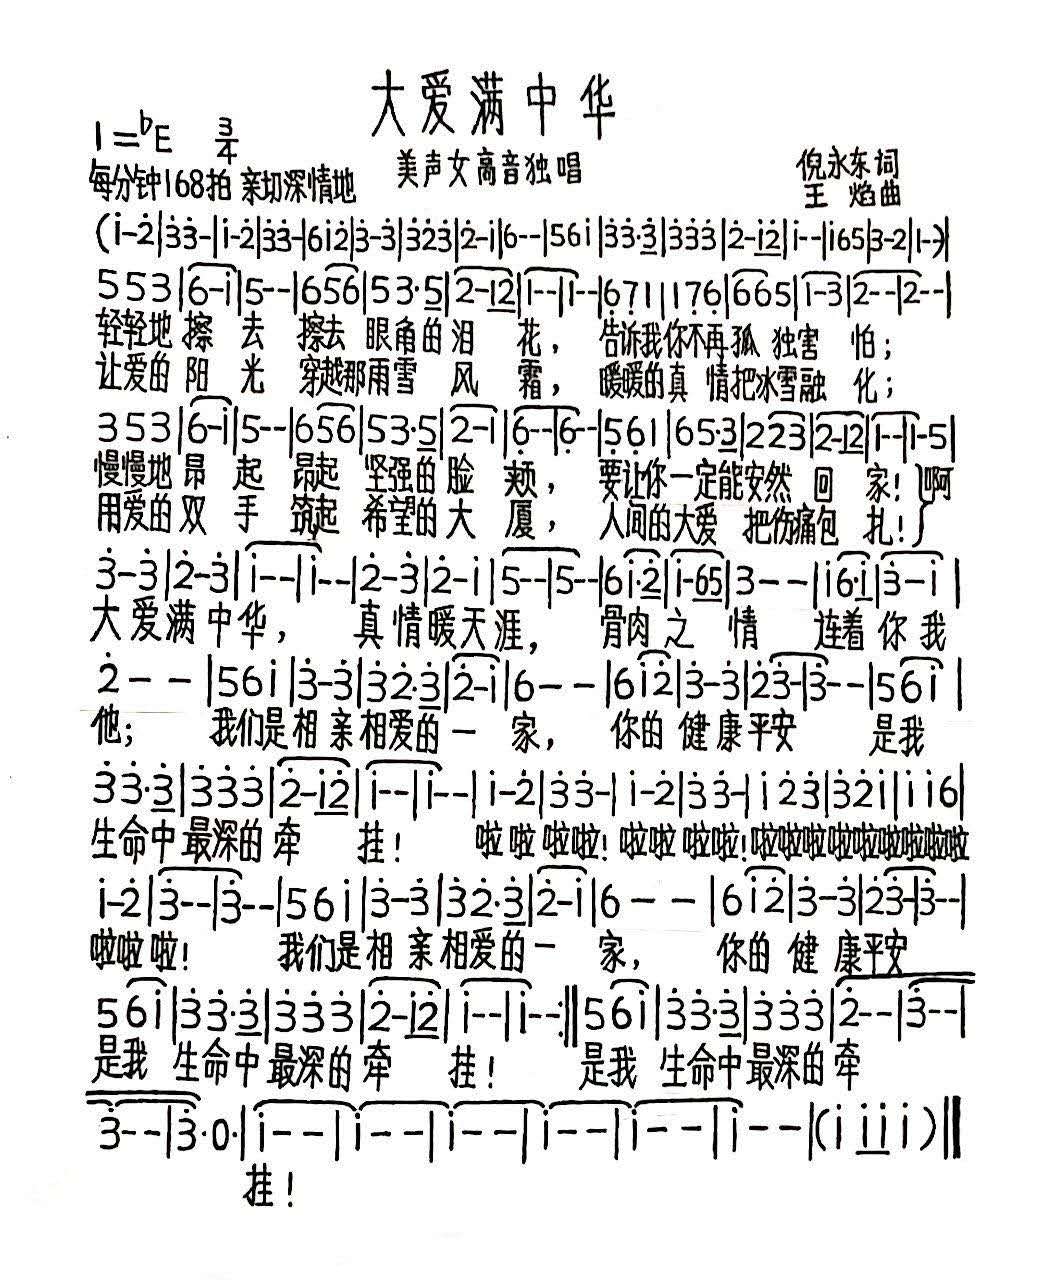 大爱满中华
1=♭E 3/4
美声女高音独唱
倪永东词
每分钟168拍 亲切深情地
王焰曲
(i-2|33-|i-2|33-|6i2|3-3|323|2-i|6--|56i|33·3|333|2-i2|i--|i65|3-2|1--)|
553|6-i|5--|656|53·5|2-i2|i--|i--|671|176|665|i-3|2--|2--|
轻轻地 擦 去 擦去 眼角的泪 花， 告诉我你不再孤 独害 怕；
让爱的 阳 光 穿越那雨雪 风 霜， 暖暖的真 情把冰雪融 化；
353|6-i|5--|656|53·5|2-i|6--|6--|561|65·3|223|2-i2|i--|i-5|
慢慢地 昂 起 昂起 坚强的 脸 颊， 要让你一定能安然 回 家！}啊
用爱的 双 手 筑起 希望的大 厦， 人间的大爱 把伤痛包 扎！}
3-3|2-3|i--|i--|2-3|2-i|5--|5--|6i·2|i-65|3--|i6·i|3-i|
大爱满中华， 真情暖天涯， 骨肉 之 情 连着 你 我
2--|56i|3-3|32·3|2-i|6--|6i2|3-3|23-|3--|56i|
他； 我们是相 亲相爱的一 家， 你的 健康平安 是我
33·3|333|2-i2|i--|i--|i-2|33-|i-2|33-|i23|32i|ii6|
生命中 最深的 牵 挂！ 啦啦 啦啦！啦啦 啦啦！啦啦啦啦啦啦啦啦啦
i-2|3--|3--|56i|3-3|32·3|2-i|6--|6i2|3-3|23-|3--|
啦啦 啦！ 我们是相 亲相爱的一 家， 你的 健 康平安
56i|33·3|333|2-i2|i--|i--:‖56i|33·3|333|2--|3--|
是我 生命中 最深的 牵 挂！ 是我 生命中最深的 牵
3--|3·0·|i--|i--|i--|i--|i--|i--|(i ii i)‖
挂！